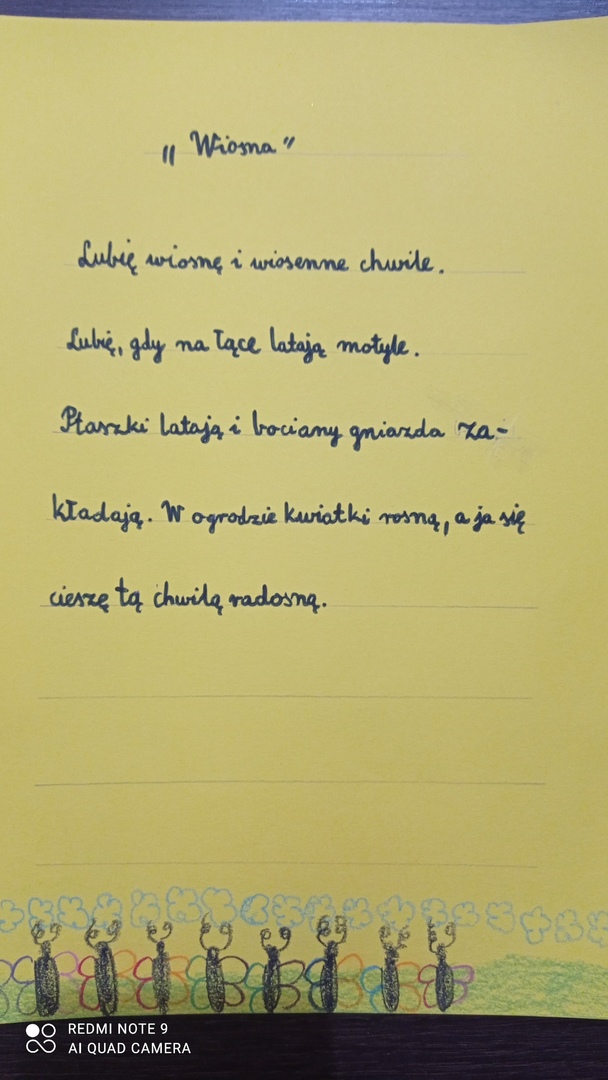 „Wiosna”
Lubię wiosnę i wiosenne chwile.
Lubię, gdy na łące latają motyle.
Ptaszki latają i bociany gniazda za-
kładają. W ogrodzie kwiatki rosną, a ja się
cieszę tą chwilą radosną.
REDMI NOTE 9
AI QUAD CAMERA